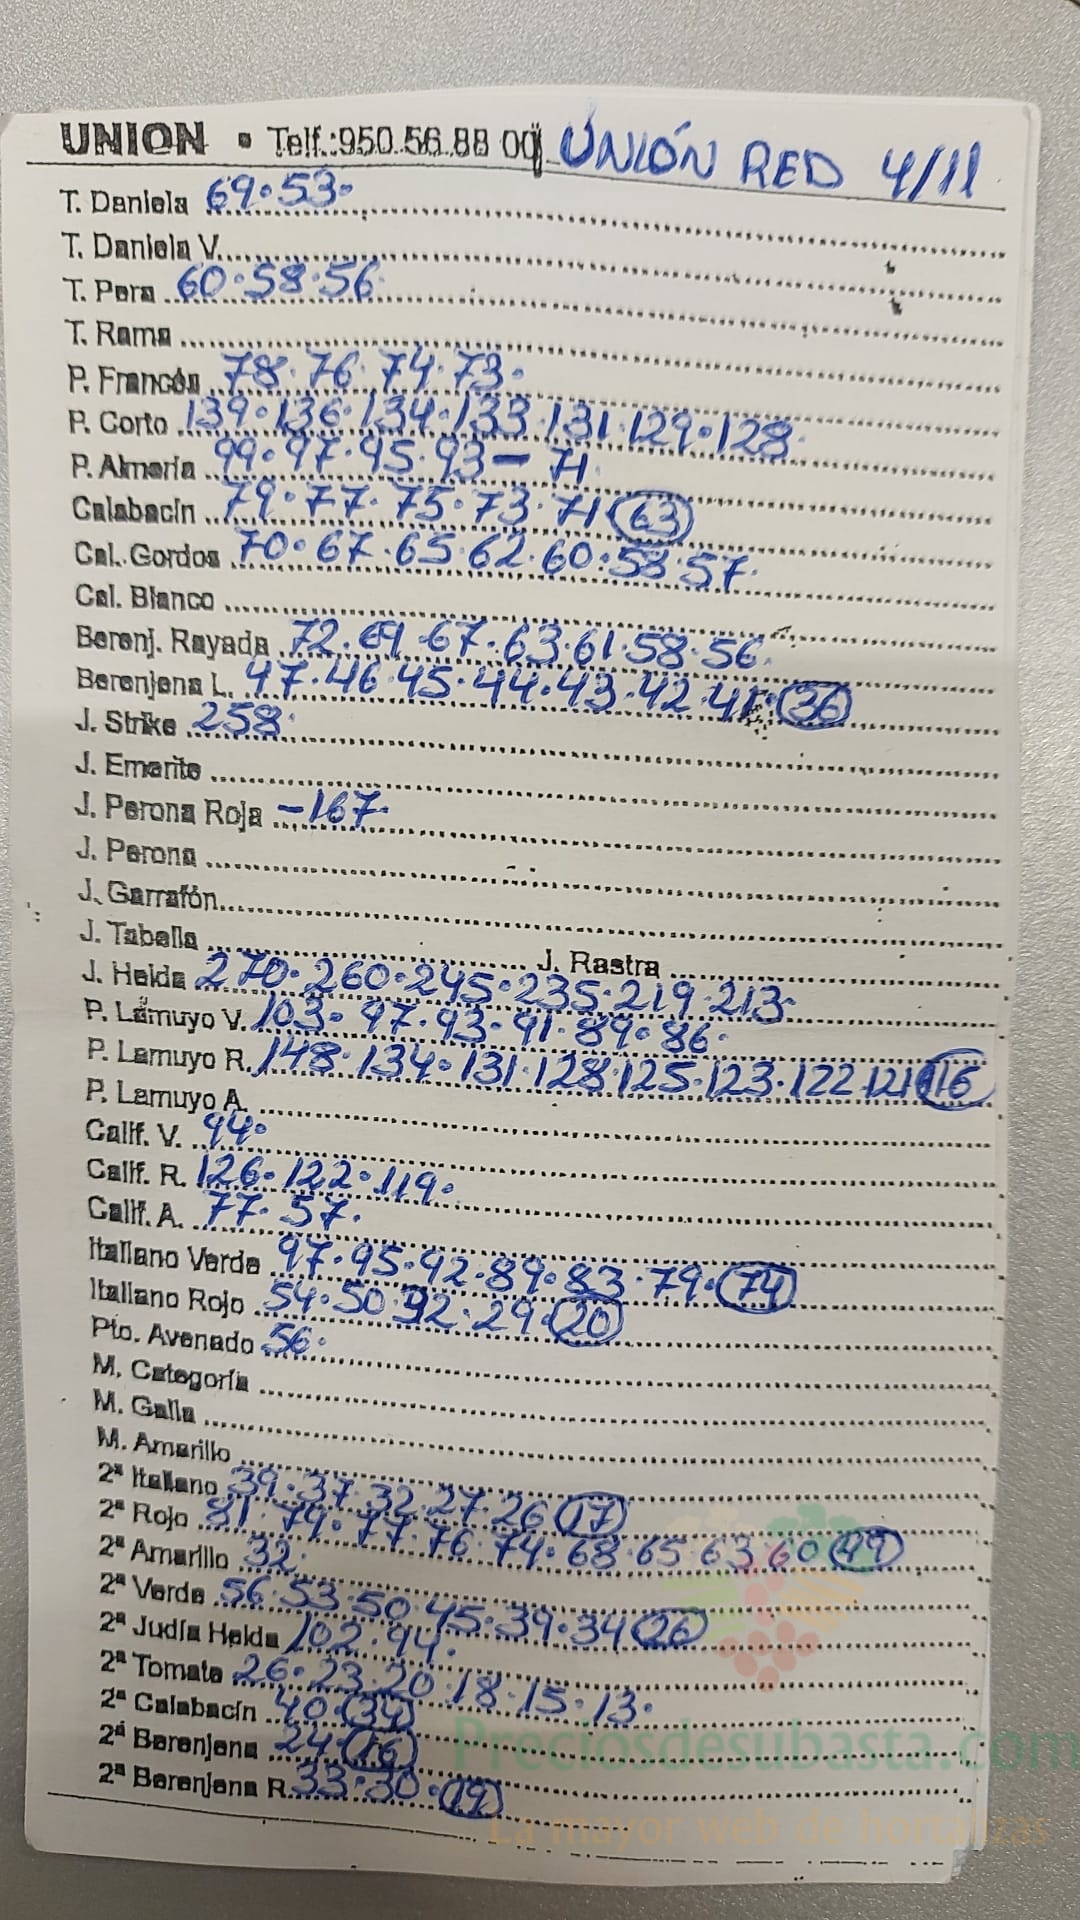 UNION • Telf.:950.56.88 00 UNIÓN RED 4/11
T. Daniela 69.53.
T. Daniela V.
T. Pera 60.58.56.
T. Rama
P. Francés 78.76.74.73.
P. Corto 139.136.134.133.131.129.128.
P. Almería 99.97.95.93-71.
Calabacín 79.77.75.73.71 (63)
Cal. Gordos 70.67.65.62.60.58.57.
Cal. Blanco
Berenj. Rayada 72.69.67.63.61.58.56.
Berenjena L. 47.46.45.44.43.42.41.(36)
J. Strike 258.
J. Emerite
J. Perona Roja -167.
J. Perona
J. Garrafón
J. Tabella J. Rastra
J. Helda 270.260.245.235.219.213.
P. Lamuyo V. 103.97.93.91.89.86.
P. Lamuyo R. 148.134.131.128.125.123.122.121(116)
P. Lamuyo A.
Calif. V. 94.
Calif. R. 126.122.119.
Calif. A. 77.57.
Italiano Verde 97.95.92.89.83.79.(74)
Italiano Rojo 54.50.32.29.(20)
Pto. Avenado 56.
M. Categoría
M. Galia
M. Amarillo
2ª Italiano 39.37.32.27.26 (17)
2ª Rojo 81.79.77.76.74.68.65.63.60 (49)
2ª Amarillo 32.
2ª Verde 56.53.50.45.39.34 (26)
2ª Judía Helda 102.94.
2ª Tomate 26.23.20.18.15.13.
2ª Calabacín 40.(34)
2ª Berenjena 24.(16)
2ª Berenjena R. 33.30.(19)
Preciosdesubasta.com
La mayor web de hortalizas